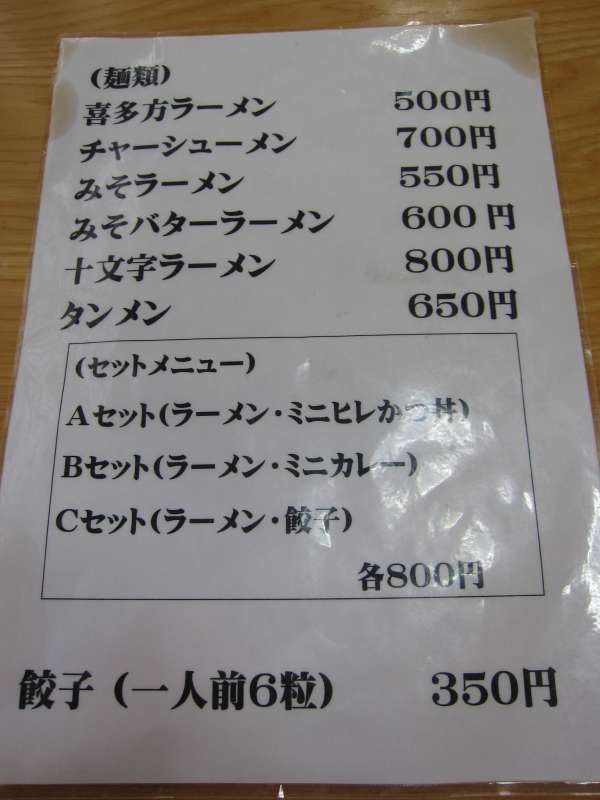 (麺類)
喜多方ラーメン 500円
チャーシューメン 700円
みそラーメン 550円
みそバターラーメン 600円
十文字ラーメン 800円
タンメン 650円
(セットメニュー)
Aセット(ラーメン・ミニヒレかつ丼)
Bセット(ラーメン・ミニカレー)
Cセット(ラーメン・餃子)
各800円
餃子(一人前6粒) 350円